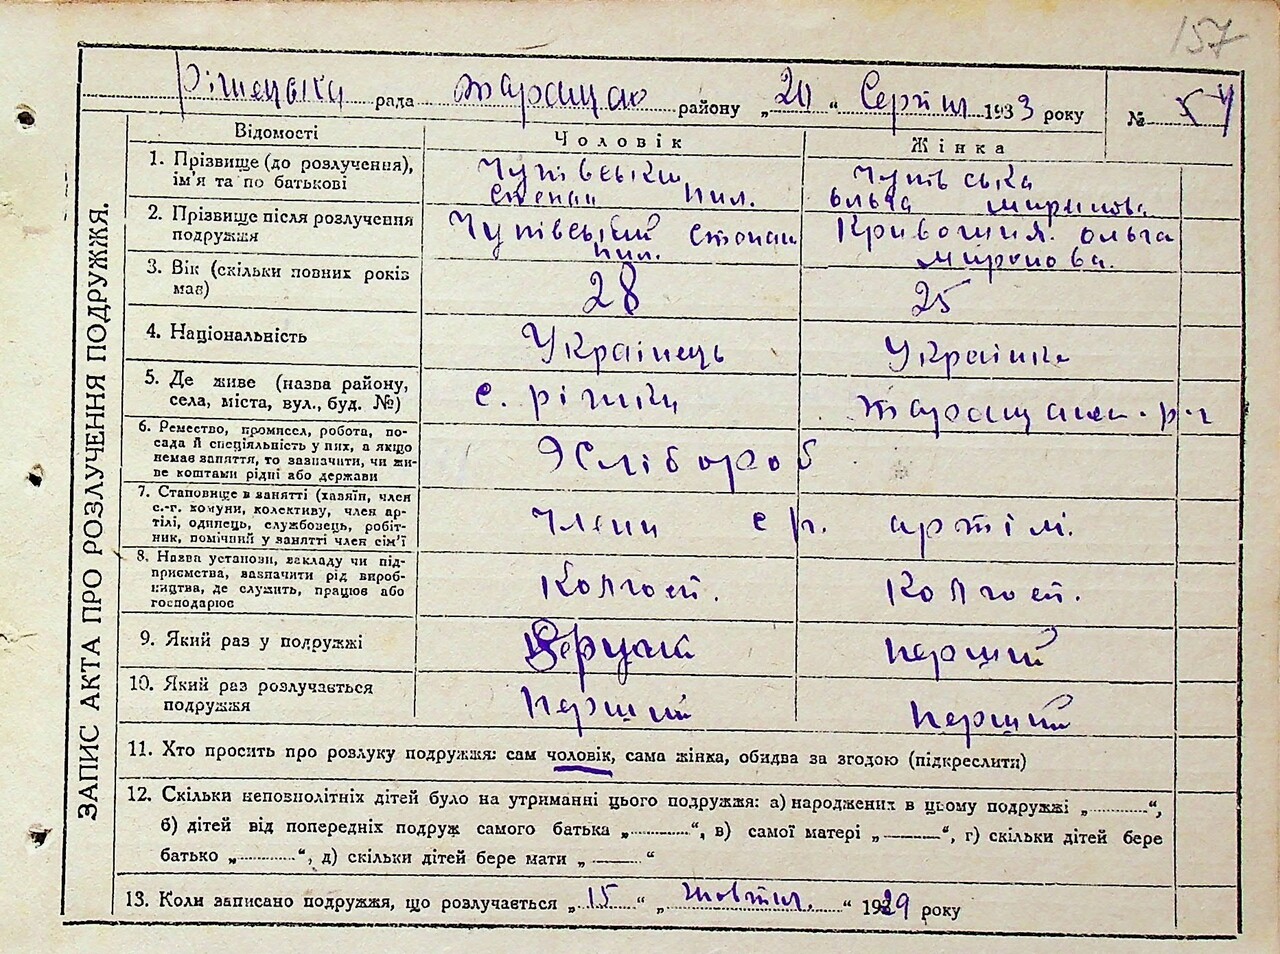 157
рада района „20“ Серпня 1933 року № 54
ЗАПИС АКТА ПРО РОЗЛУЧЕННЯ ПОДРУЖЖЯ.
Відомості Чоловік Жінка
1. Прізвище (до розлучення), ім'я та по батькові
Чупівськи Степан Пил.
Чупівська Ольга Миронова
2. Прізвище після розлучення подружжя
Чупівський Степан Пил.
Кривошия. Ольга Миронова.
3. Вік (скільки повних років має)
28 25
4. Національність Українець Українка
5. Де живе (назва району, села, міста, вул., буд. №)
с. ріжки р-н
6. Ремество, промисел, робота, посада й спеціяльність у них, а якщо немає заняття, то зазначити, чи живе коштами рідні або держави
Хлібороб
7. Становище в занятті (хазяїн, член с.-г. комуни, колективу, член артілі, одинець, службовець, робітник, помічний у занятті член сім'ї
Члени с г. артілі.
8. Назва установи, закладу чи підприємства, зазначити рід виробництва, де служить, працює або господарює
Колгосп. Колгосп.
9. Який раз у подружжі перший
10. Який раз розлучається подружжя
перший перший
11. Хто просить про розлуку подружжя: сам чоловік, сама жінка, обидва за згодою (підкреслити)
12. Скільки неповнолітніх дітей було на утриманні цього подружжя: а) народжених в цьому подружжі „ “,
б) дітей від попередніх подруж самого батька „ “, в) самої матері „ — “, г) скільки дітей бере
батько „ “, д) скільки дітей бере мати „ — “
13. Коли записано подружжя, що розлучається „15“ „Жовтня.“ 1929 року